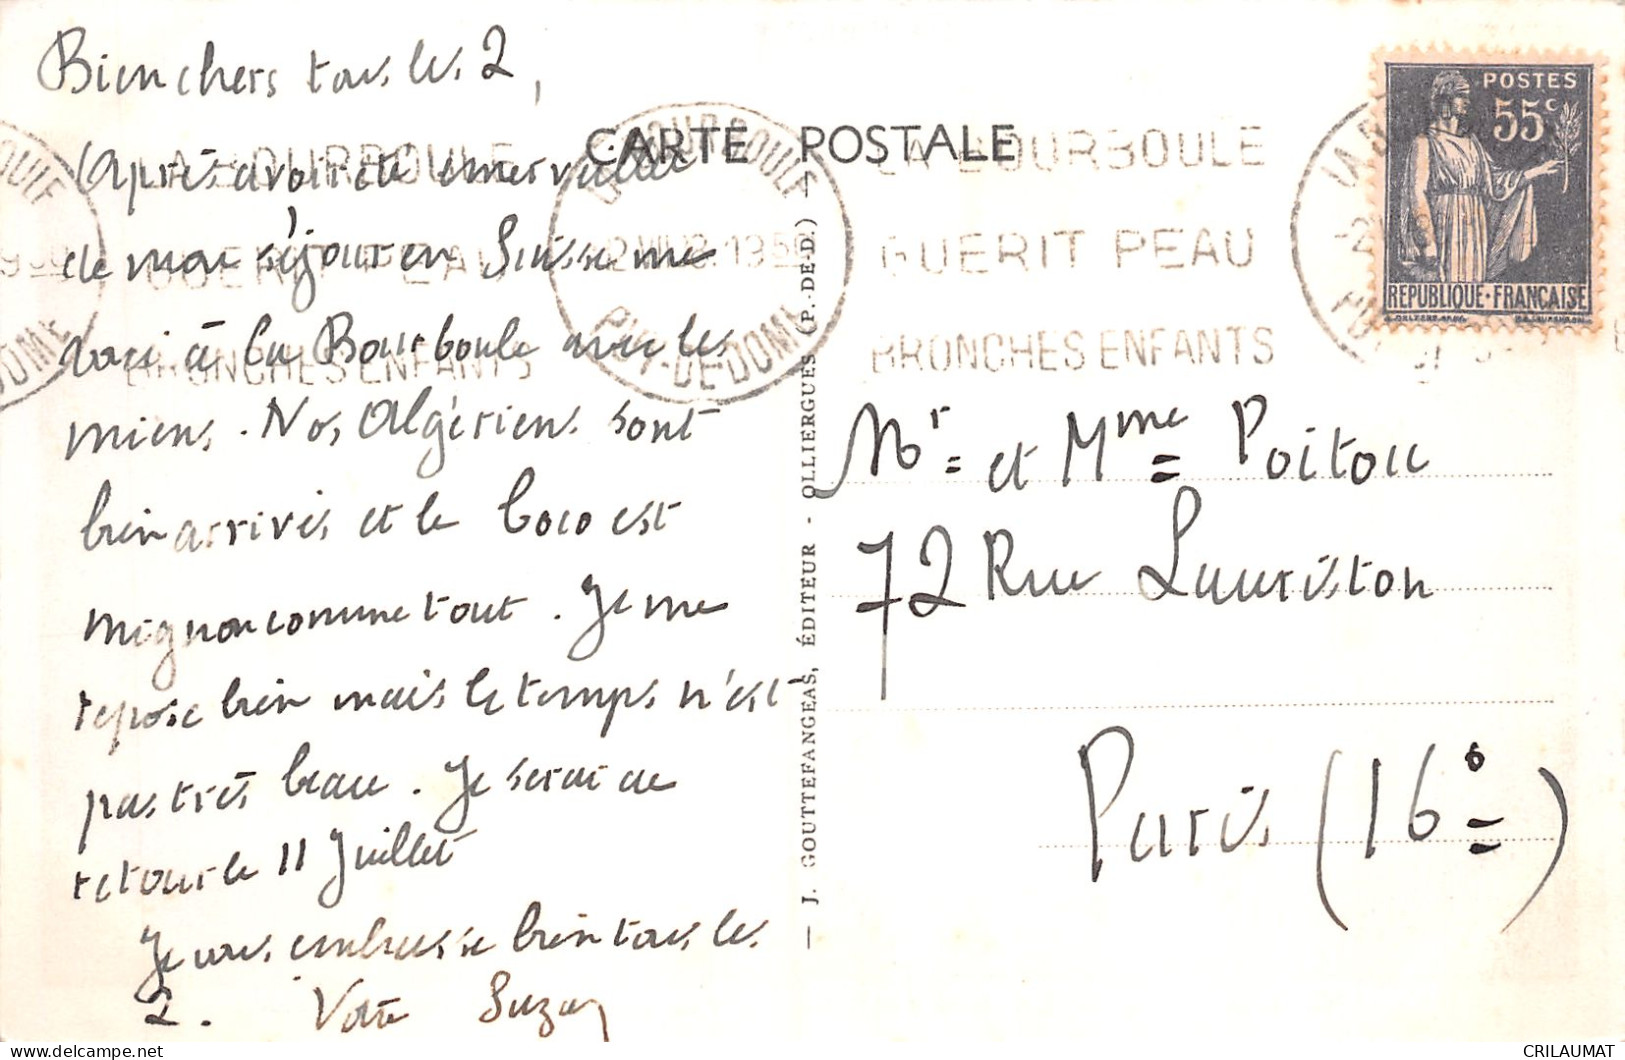 Bien chers tous les 2,
Après avoir été émerveillée
de mon séjour en Suisse me
voici à La Bourboule avec les
miens. Nos Algériens sont
bien arrivés et le Coco est
mignon comme tout. Je me
repose bien mais le temps n'est
pas très beau. Je serai de
retour le 11 Juillet
Je vous embrasse bien tous les
2. Votre Suzon
CARTE POSTALE
LA BOURBOULE
GUERIT PEAU
BRONCHES ENFANTS
LA BOURBOULE
PUY-DE-DOME
LA BOURBOULE
GUERIT PEAU
BRONCHES ENFANTS
— J. GOUTTEFANGEAS, ÉDITEUR - OLLIERGUES (P.-DE-D.) —
POSTES
55c
REPUBLIQUE·FRANÇAISE
Mr et Mme Poitou
72 Rue Lauriston
Paris (16e)
CRILAUMAT